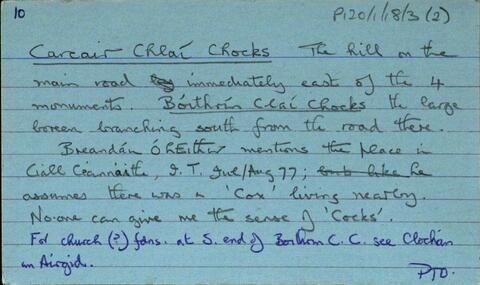 10
P120/1/18/3 (2)
Carcair Chlaí Chocks The hill on the
main road immediately east of the 4
monuments. Bóithrín Claí Chocks the large
boreen branching south from the road there.
Breandán ÓhEithir mentions the place in
Ciall Céannaithe, I.T. Jul/Aug 77; he
assumes there was a 'Cox' living nearby.
No-one can give me the sense of 'Cocks'.
For church (?) fdns. at S. end of Borthrn C.C. see Clochán
an Airgid.
PTO.